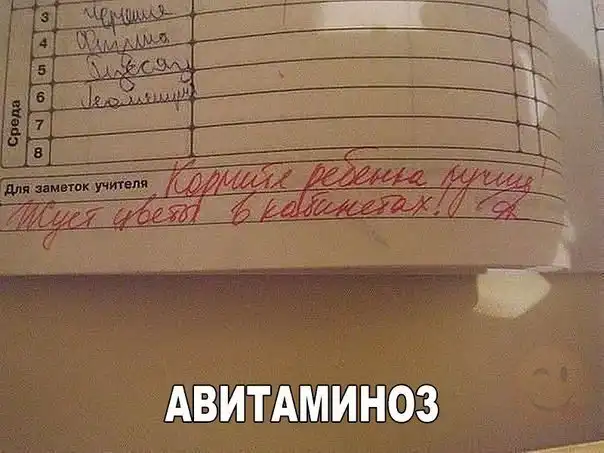 3 Черчение
4 Физика
5
6
7
8
Среда
Для заметок учителя Кормите ребенка лучше!
Жует цветы в кабинетах!
АВИТАМИНОЗ